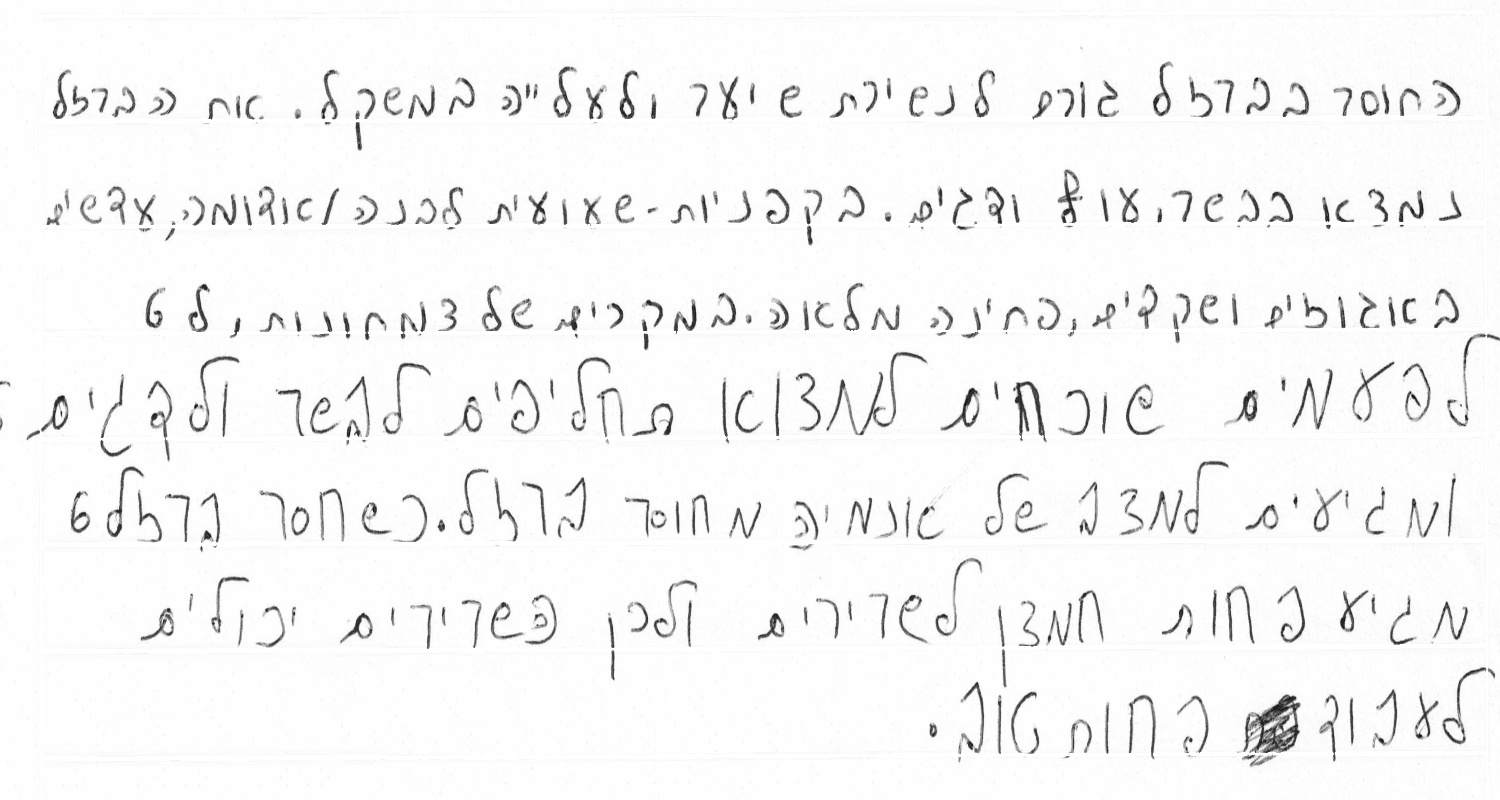 החוסר בברזל גורם לנשירת שיער ולעלייה במשקל. את הברזל
נמצא בבשר, עוף ודגים. בקטניות-שעועית לבנה/אדומה, עדשים
באגוזים ושקדים, טחינה מלאה. במקרים של צמחונות, ל6
לפעמים שוכחים למצוא תחליפים לבשר ולדגים
ומגיעים למצב של אנמיה מחוסר ברזל. כשחסר ברזל6
מגיע פחות חמצן לשרירים ולכן השרירים יכולים
לעבוד פחות טוב.